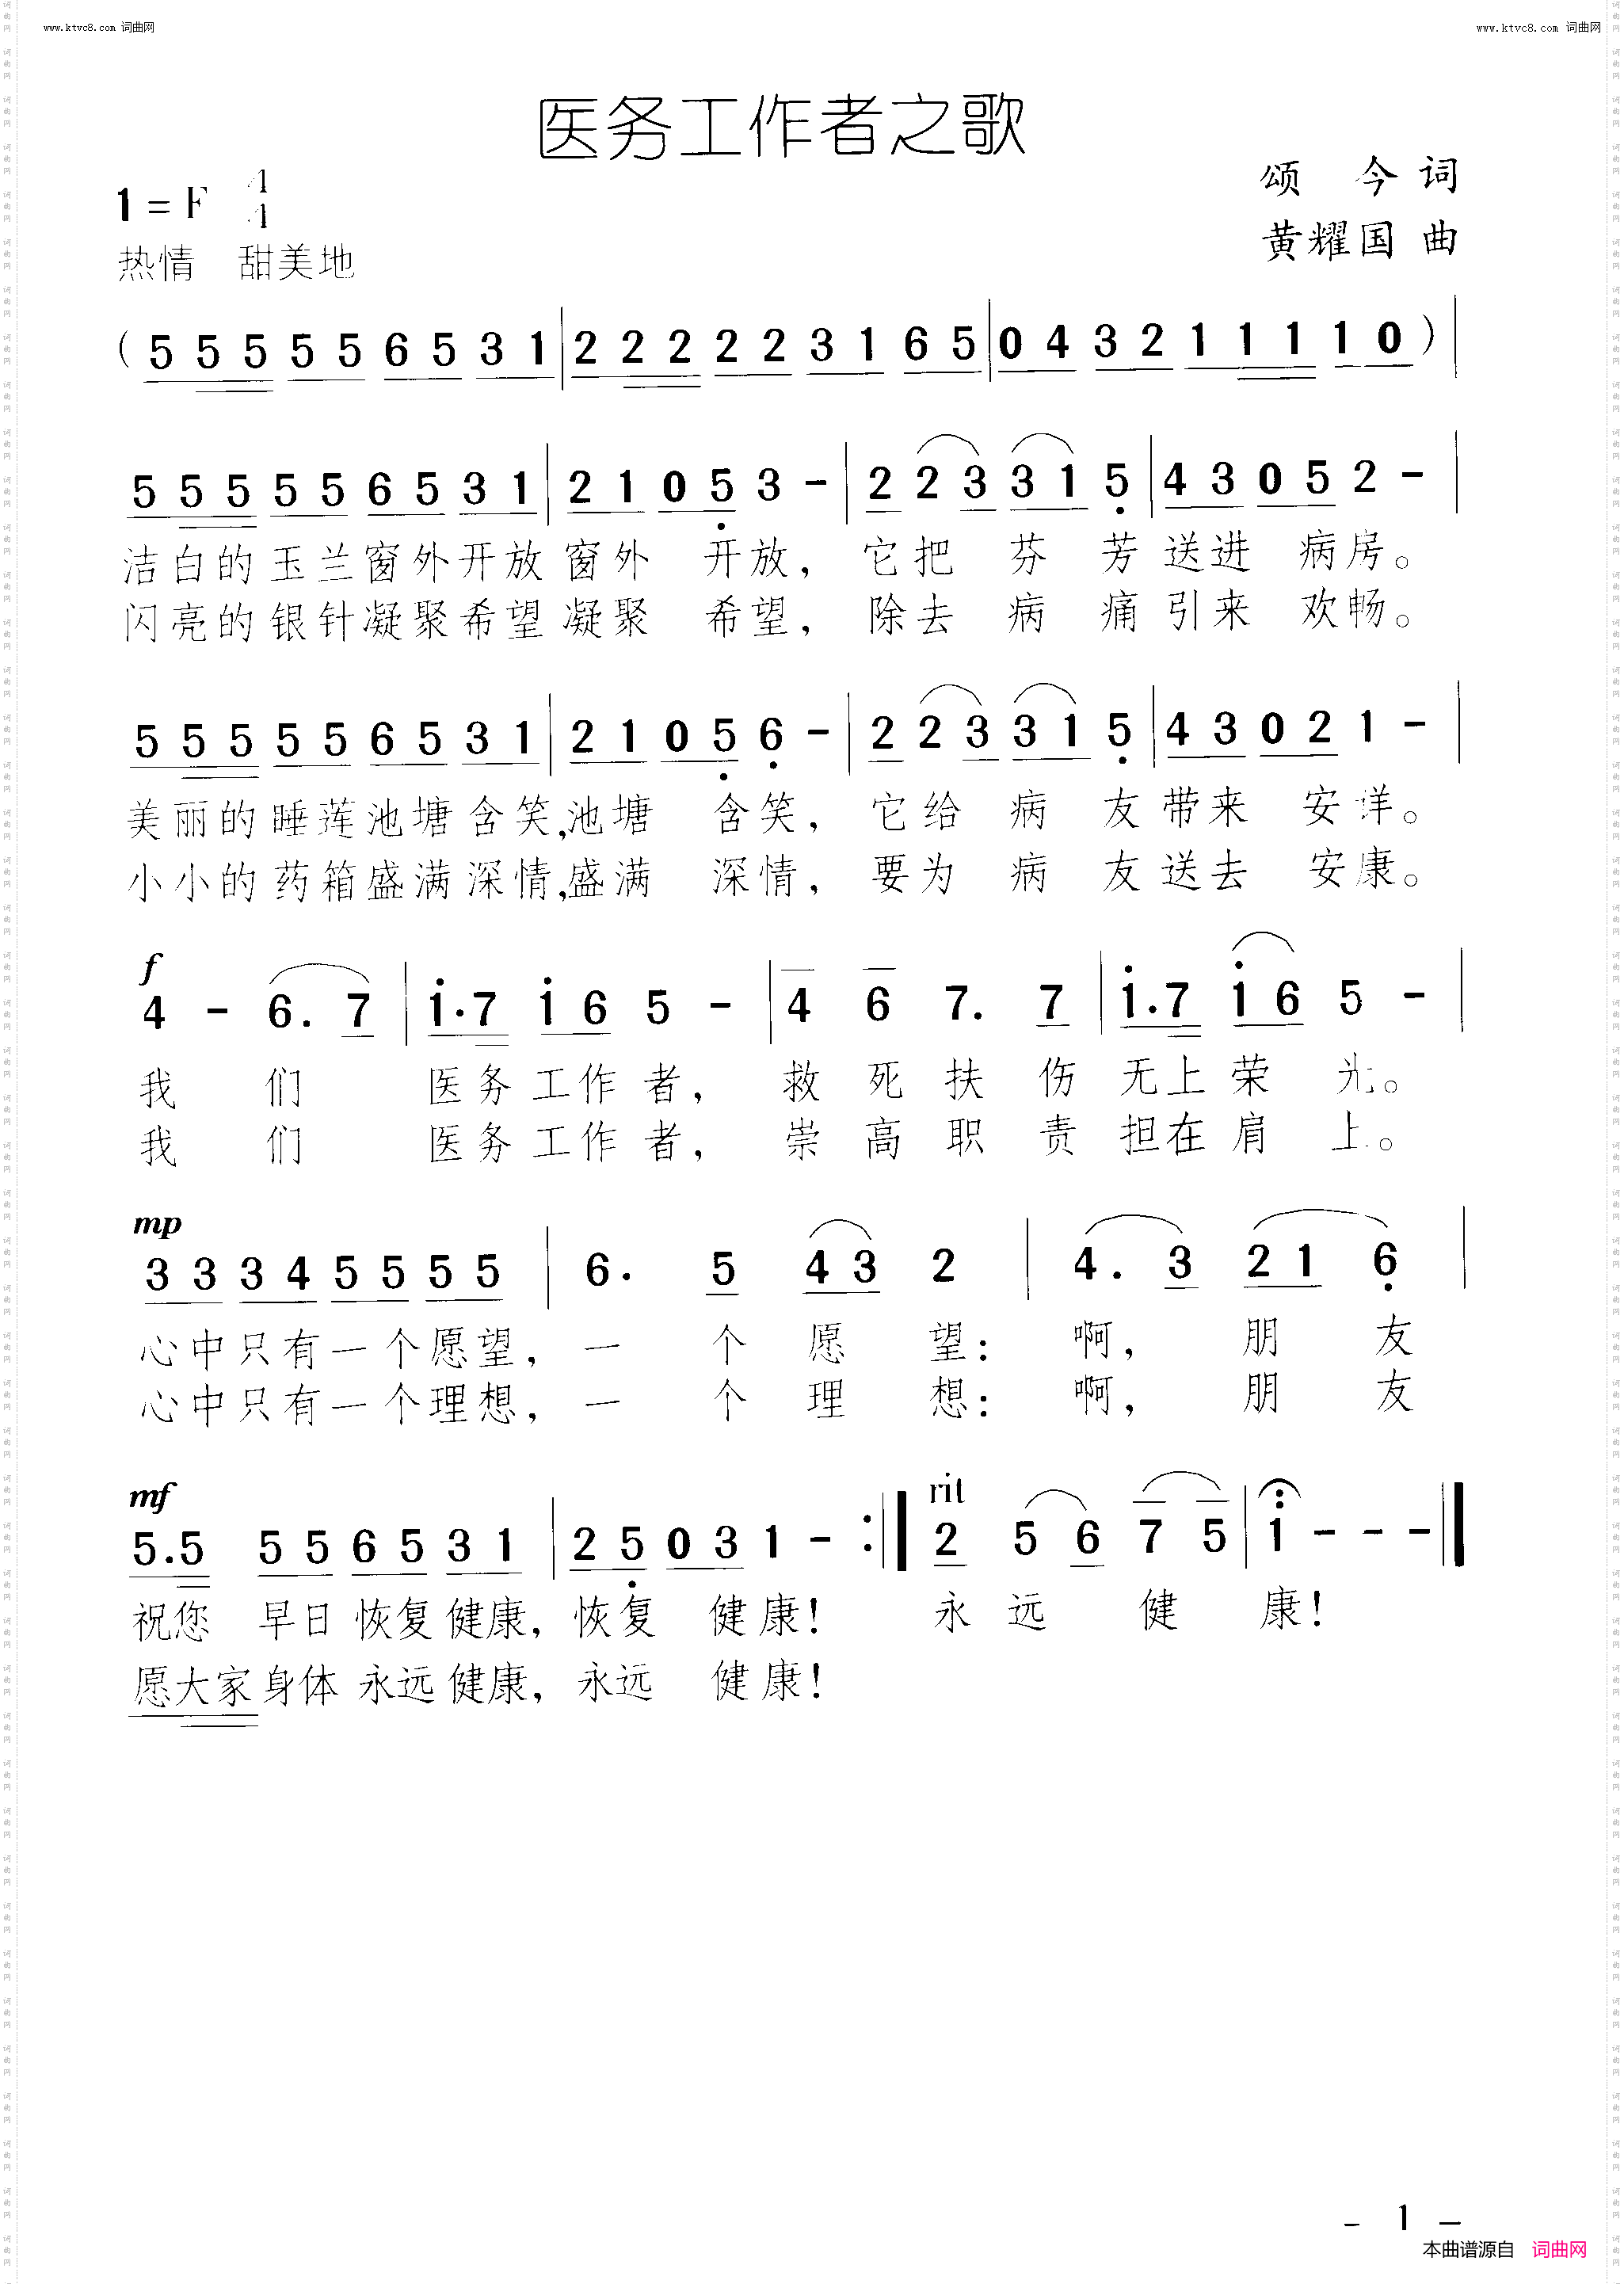 www.ktvc8.com 词曲网 www.ktvc8.com 词曲网
医务工作者之歌
1 = F 4/4 颂 今 词
热情 甜美地 黄耀国 曲
( 5 5 5 5 5 6 5 3 1 | 2 2 2 2 2 3 1 6 5 | 0 4 3 2 1 1 1 1 0 ) |
5 5 5 5 5 6 5 3 1 | 2 1 0 5̣ 3 - | 2 2 3 3 1 5̣ | 4 3 0 5 2 - |
洁白的玉兰窗外开放窗外 开放， 它把 芬 芳 送进 病房。
闪亮的银针凝聚希望凝聚 希望， 除去 病 痛 引来 欢畅。
5 5 5 5 5 6 5 3 1 | 2 1 0 5̣ 6̣ - | 2 2 3 3 1 5̣ | 4 3 0 2 1 - |
美丽的睡莲池塘含笑,池塘 含笑， 它给 病 友 带来 安详。
小小的药箱盛满深情,盛满 深情， 要为 病 友 送去 安康。
f
4 - 6. 7 | i·7 i 6 5 - | 4 6 7. 7 | i.7 i 6 5 - |
我 们 医务工作 者， 救 死 扶 伤 无上荣 光。
我 们 医务工作 者， 崇 高 职 责 担在肩 上。
mp
3 3 3 4 5 5 5 5 | 6. 5 4 3 2 | 4. 3 2 1 6̣ |
心中只有一个愿望， 一 个 愿 望： 啊， 朋 友
心中只有一个理想， 一 个 理 想： 啊， 朋 友
mf rit
5.5 5 5 6 5 3 1 | 2 5̣ 0 3 1 - :‖ 2 5 6 7 5 | i - - - ‖
祝您 早日恢复健康， 恢复 健康！ 永 远 健 康！
愿大家身体永远健康， 永远 健康！
- 1 -
本曲谱源自 词曲网